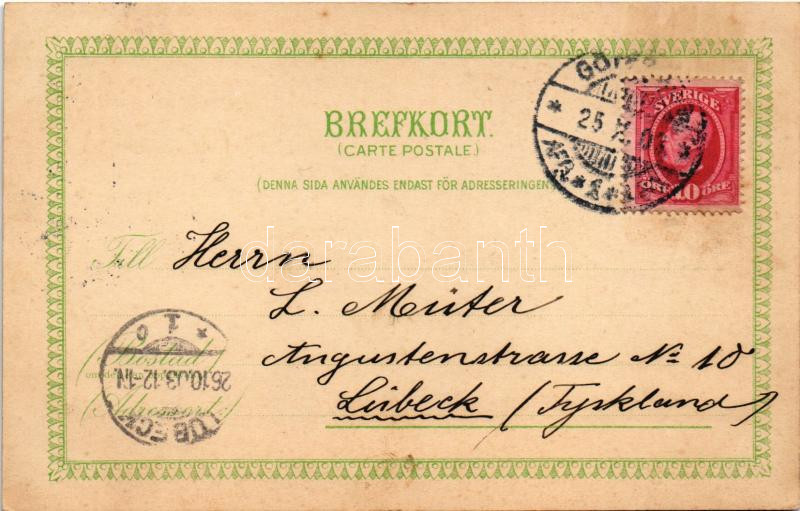 BREFKORT.
(CARTE POSTALE.)
(DENNA SIDA ANVÄNDES ENDAST FÖR ADRESSERINGEN
SVERIGE
ÖRE 10 ÖRE
25 X
AFG.
Till Herrn
L. Müter
Angustenstrasse No 10
Lübeck (Tyskland)
(Bostad)
(Adressort:)
LÜBECK
26.10.03.12-1N.
* 1 c
darabanth